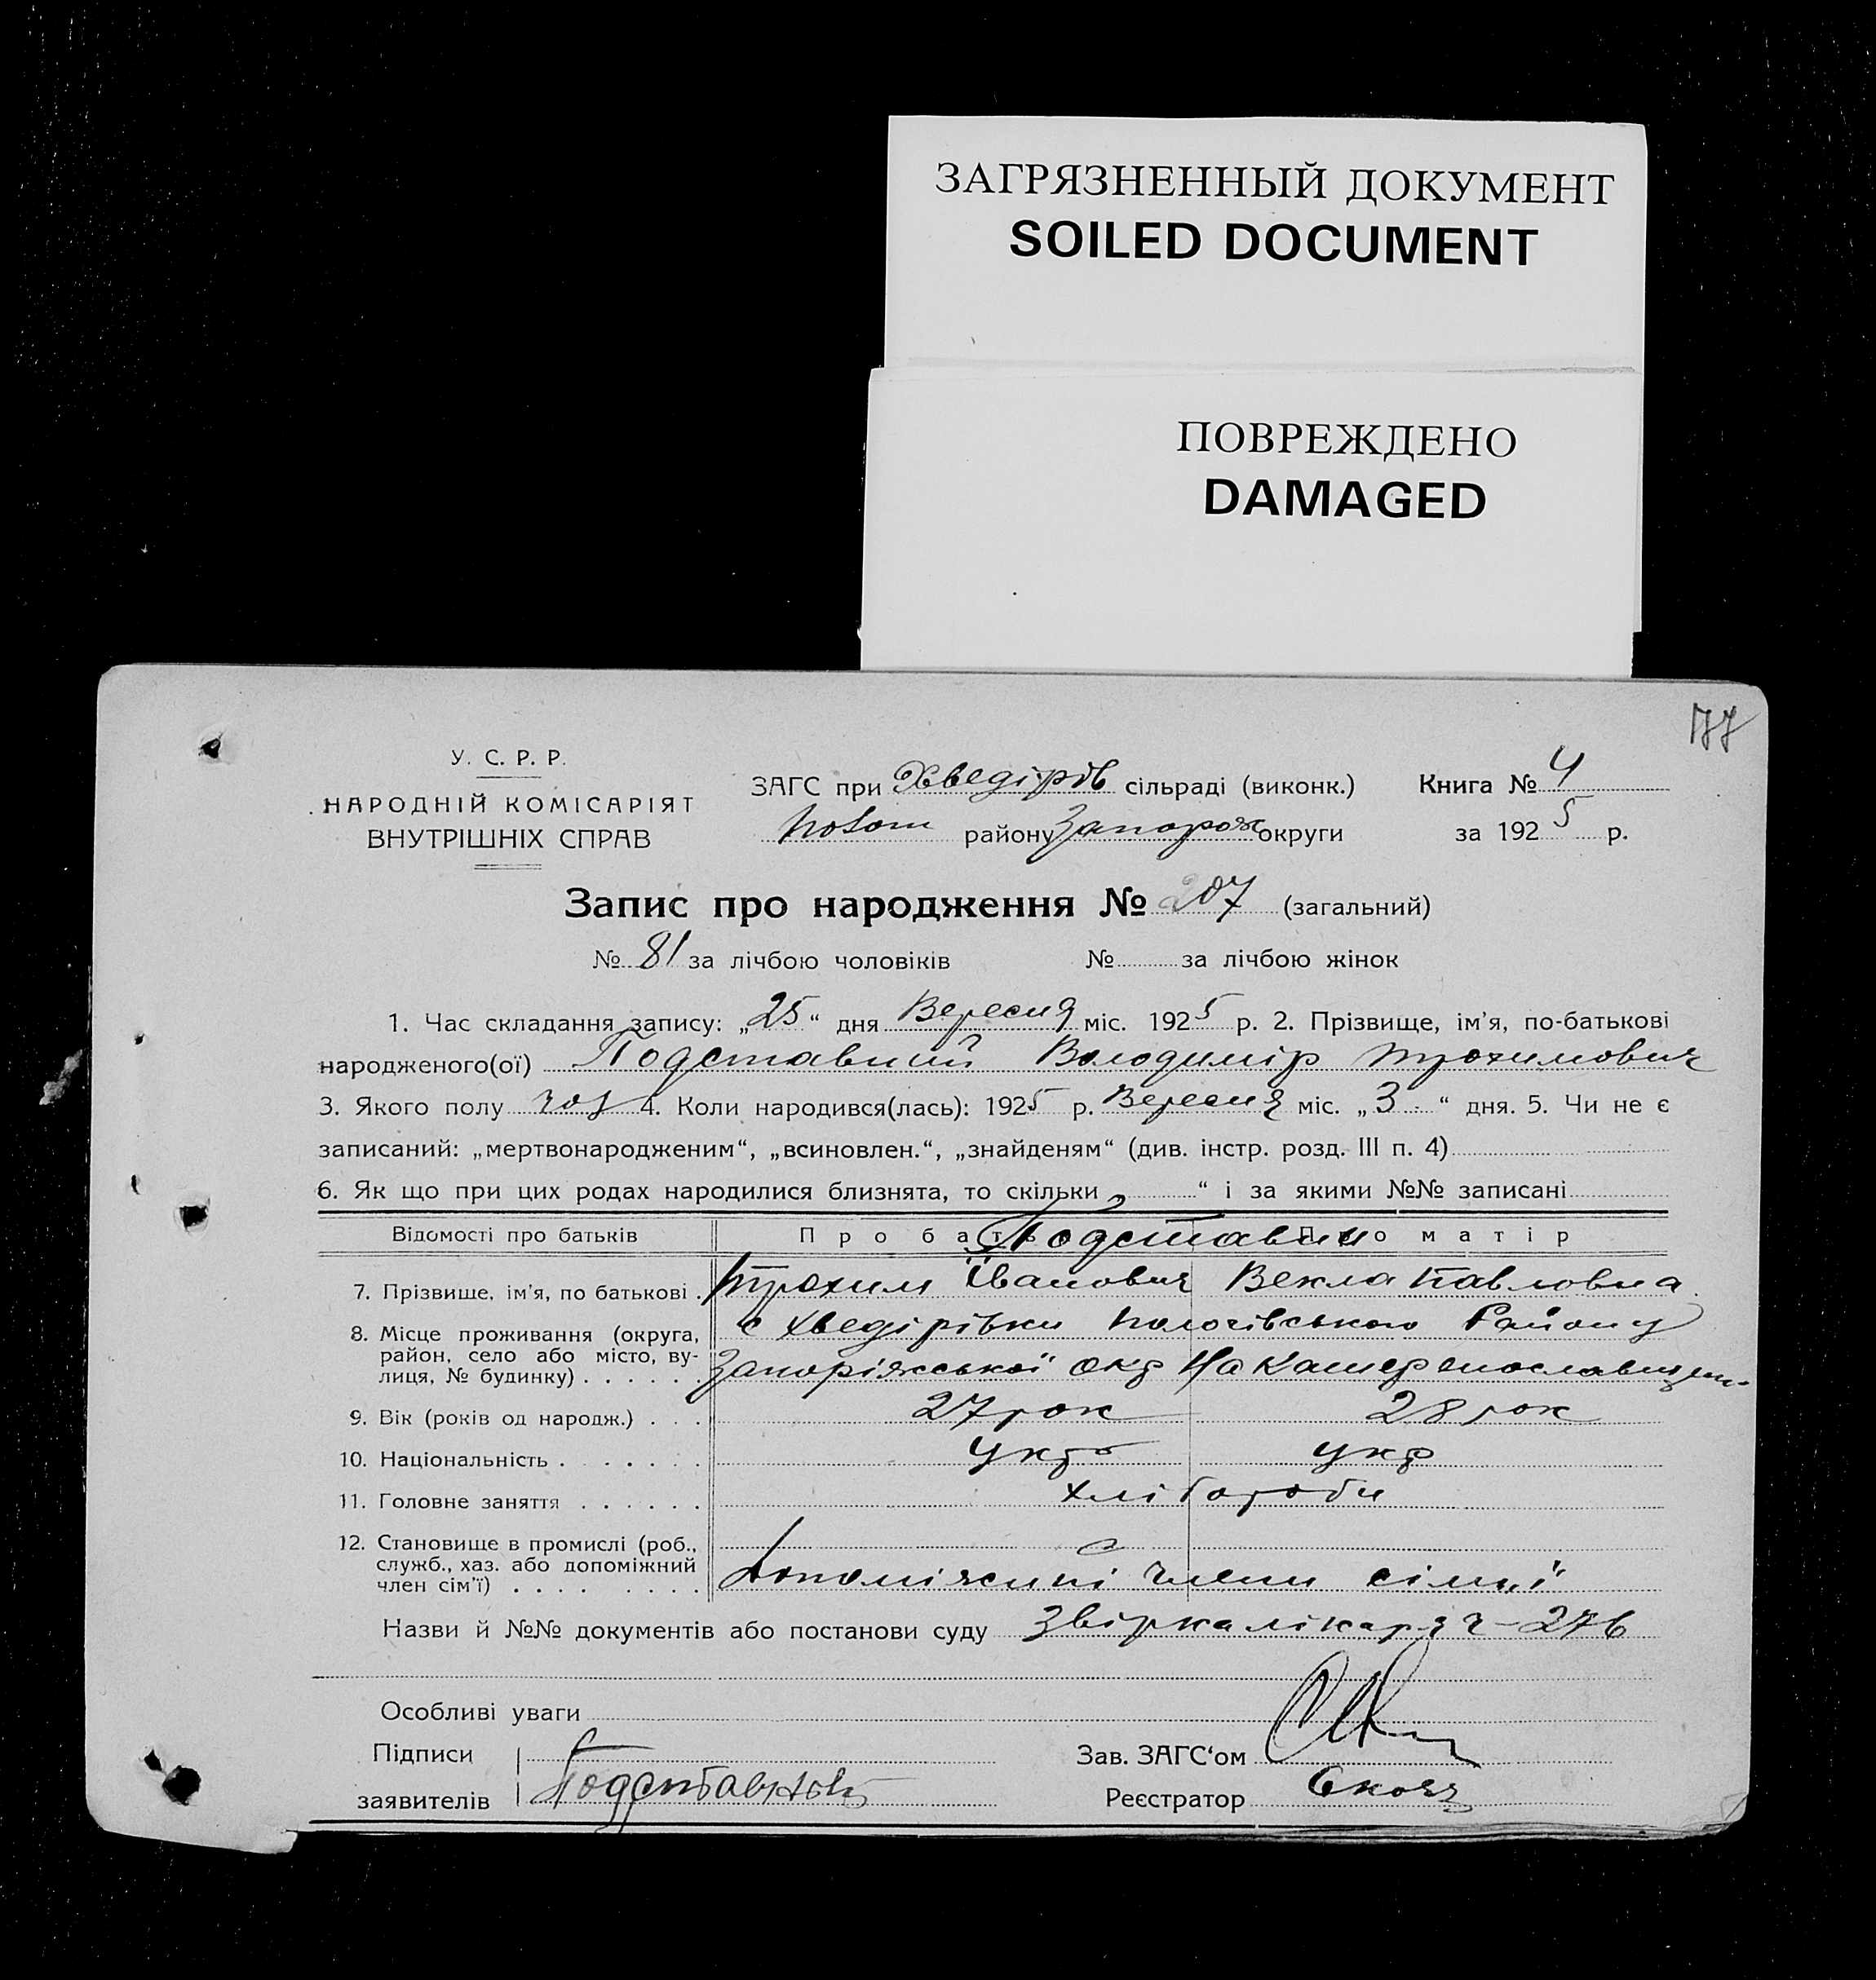 ЗАГРЯЗНЕННЫЙ ДОКУМЕНТ
SOILED DOCUMENT
ПОВРЕЖДЕНО
DAMAGED
177
У. С. Р. Р.
НАРОДНІЙ КОМІСАРІЯТ
ВНУТРІШНІХ СПРАВ
ЗАГС при Хведірів сільраді (виконк.)
району Запорож округи
Книга № 4
за 1925 р.
Запис про народження № 207 (загальний)
№ 81 за лічбою чоловіків № за лічбою жінок
1. Час складання запису: „25“ дня Вересня міс. 1925 р. 2. Прізвище, ім’я, по-батькові
народженого(ої) Подставний Володимір Трохимович
3. Якого полу чол 4. Коли народився(лась): 1925 р. Вересня міс. „3“ дня. 5. Чи не є
записаний: „мертвонародженим“, „всиновлен.“, „знайденям“ (див. інстр. розд. III п. 4)
6. Як що при цих родах народилися близнята, то скільки „ “ і за якими №№ записані
Відомості про батьків Про батька Про матір
Подставни
7. Прізвише, ім’я, по батькові . Трохим Іванович Векла Павловна
8. Місце проживання (округа, район, село або місто, вулиця, № будинку) . . . . . . с Хведірівки Пологівського Району
Запоріжської окр На Катеренославщин
9. Вік (років од народж.) . . . 27 рок 28 рок
10. Національність . . . . . . . укр укр
11. Головне заняття . . . . . . хлібороби
12. Становище в промислі (роб., служб., хаз. або допоміжний член сім’ї) . . . . . . . . Допоміжні члени сімї
Назви й №№ документів або постанови суду Звірка лікаря ч – 276
Особливі уваги
Підписи
заявителів
Зав. ЗАГС‘ом
Реєстратор